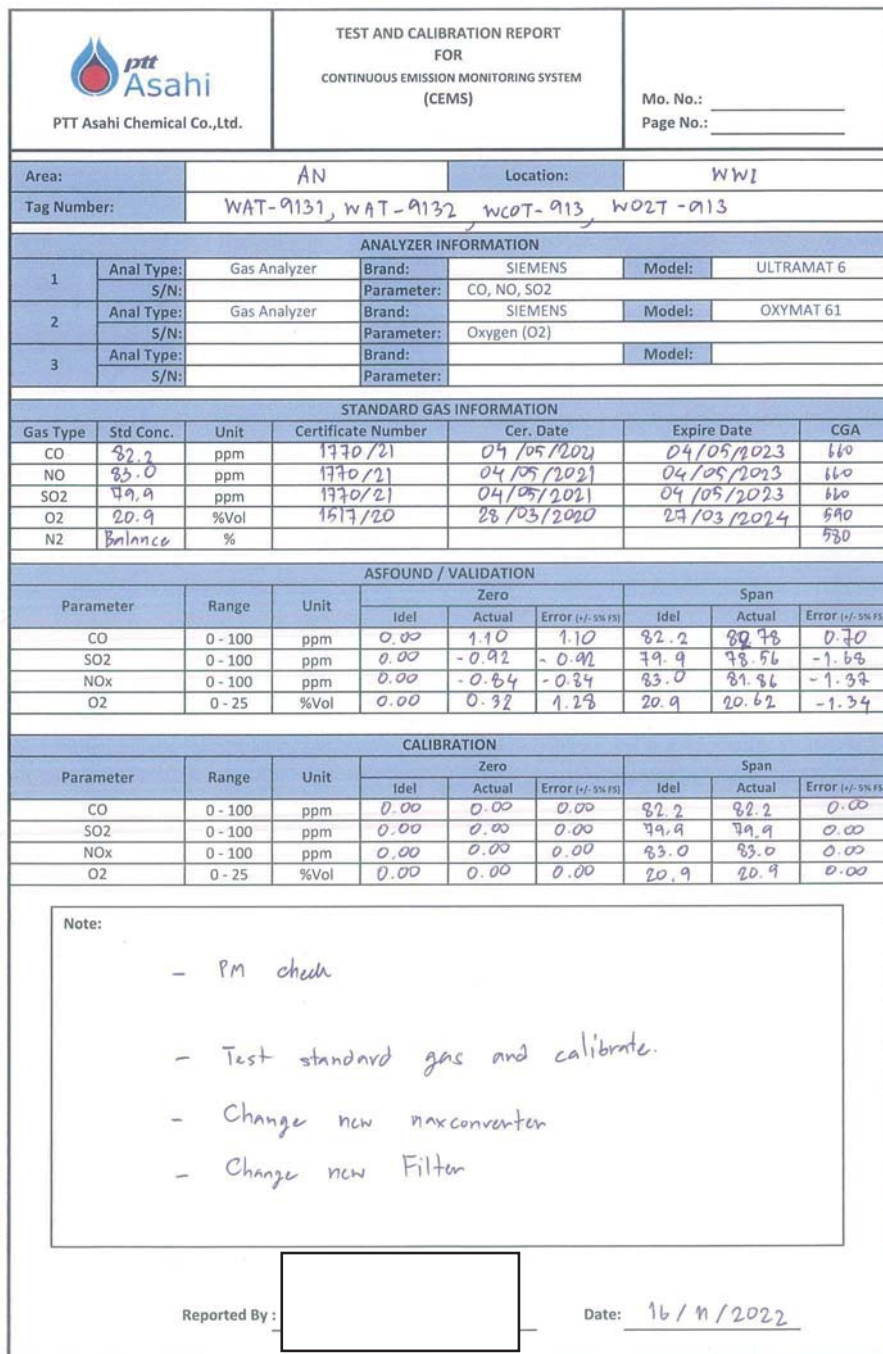 ptt
Asahi
PTT Asahi Chemical Co.,Ltd.
TEST AND CALIBRATION REPORT
FOR
CONTINUOUS EMISSION MONITORING SYSTEM
(CEMS)
Mo. No.:
Page No.:
Area: AN Location: WWI
Tag Number: WAT-9131, WAT-9132, WCOT-913, WO2T-913
ANALYZER INFORMATION
1 Anal Type: Gas Analyzer Brand: SIEMENS Model: ULTRAMAT 6
S/N: Parameter: CO, NO, SO2
2 Anal Type: Gas Analyzer Brand: SIEMENS Model: OXYMAT 61
S/N: Parameter: Oxygen (O2)
3 Anal Type: Brand: Model:
S/N: Parameter:
STANDARD GAS INFORMATION
Gas Type Std Conc. Unit Certificate Number Cer. Date Expire Date CGA
CO 82.2 ppm 1770/21 04/05/2021 04/05/2023 660
NO 83.0 ppm 1770/21 04/05/2021 04/05/2023 660
SO2 79.9 ppm 1770/21 04/05/2021 04/05/2023 660
O2 20.9 %Vol 1517/20 28/03/2020 27/03/2024 590
N2 Balance % 580
ASFOUND / VALIDATION
Parameter Range Unit Zero Span
Idel Actual Error (+/- 5% FS) Idel Actual Error (+/- 5% FS)
CO 0 - 100 ppm 0.00 1.10 1.10 82.2 .78 0.70
SO2 0 - 100 ppm 0.00 -0.92 -0.92 79.9 78.56 -1.68
NOx 0 - 100 ppm 0.00 -0.84 -0.84 83.0 81.86 -1.37
O2 0 - 25 %Vol 0.00 0.32 1.28 20.9 20.62 -1.34
CALIBRATION
Parameter Range Unit Zero Span
Idel Actual Error (+/- 5% FS) Idel Actual Error (+/- 5% FS)
CO 0 - 100 ppm 0.00 0.00 0.00 82.2 82.2 0.00
SO2 0 - 100 ppm 0.00 0.00 0.00 79.9 79.9 0.00
NOx 0 - 100 ppm 0.00 0.00 0.00 83.0 83.0 0.00
O2 0 - 25 %Vol 0.00 0.00 0.00 20.9 20.9 0.00
Note:
- PM check
- Test standard gas and calibrate.
- Change new noxconverter
- Change new Filter
Reported By : Date: 16/11/2022